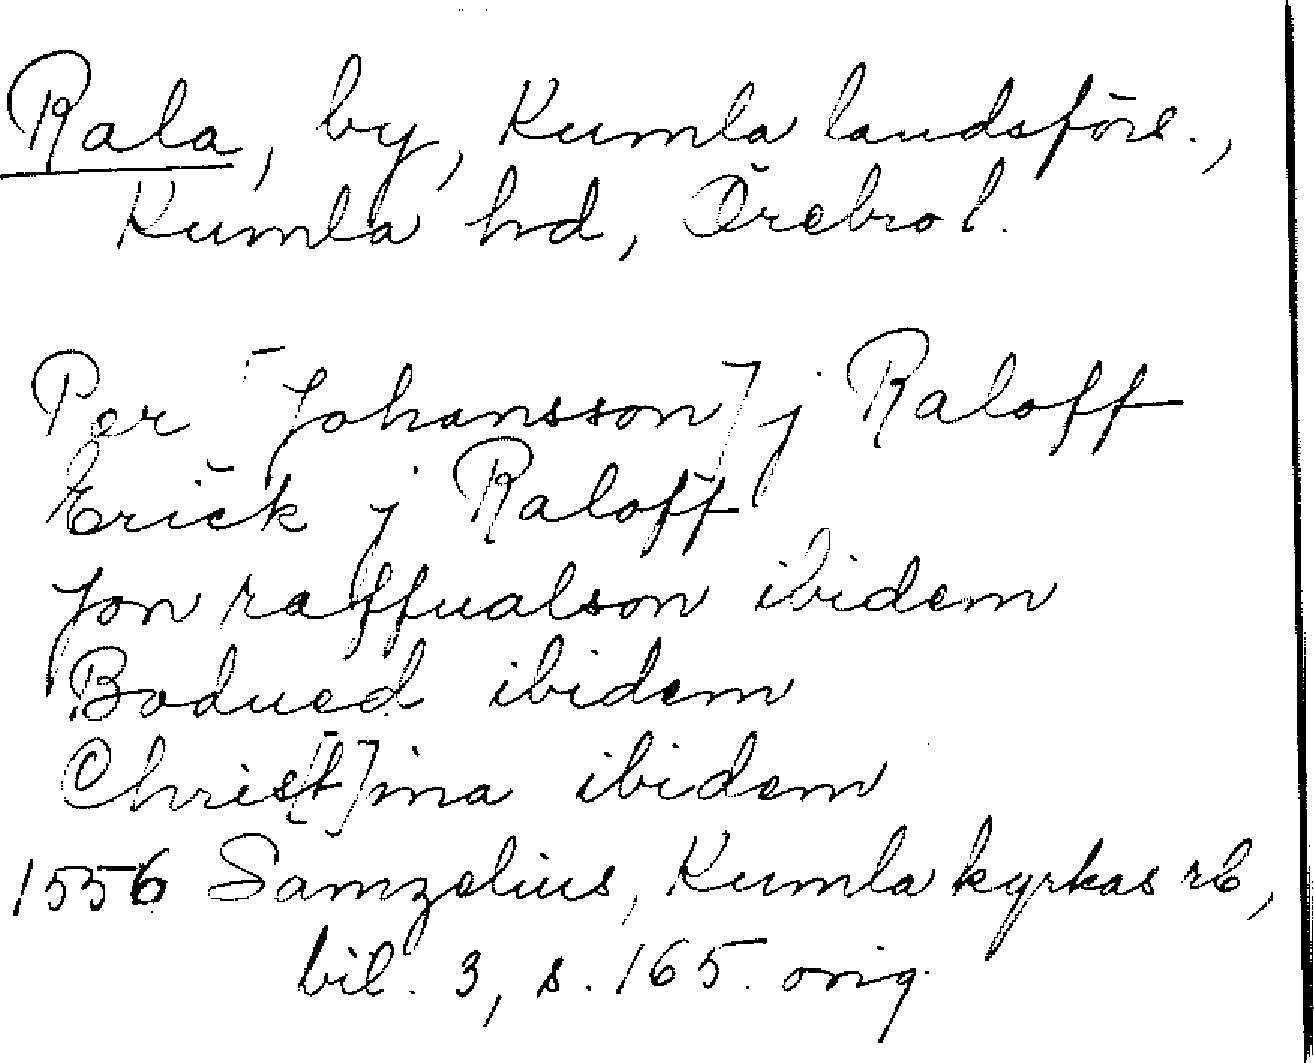 Rala, by, Kumla landsförs.,
Kumla hd, Örebro l.
Per [Johansson] j Raloff
Erick j Raloff
Jon raffualson ibidem
Bodued ibidem
Christ[t]ina ibidem
1556 Samzelius, Kumla kyrkas rb,
bil. 3, s. 165. orig.